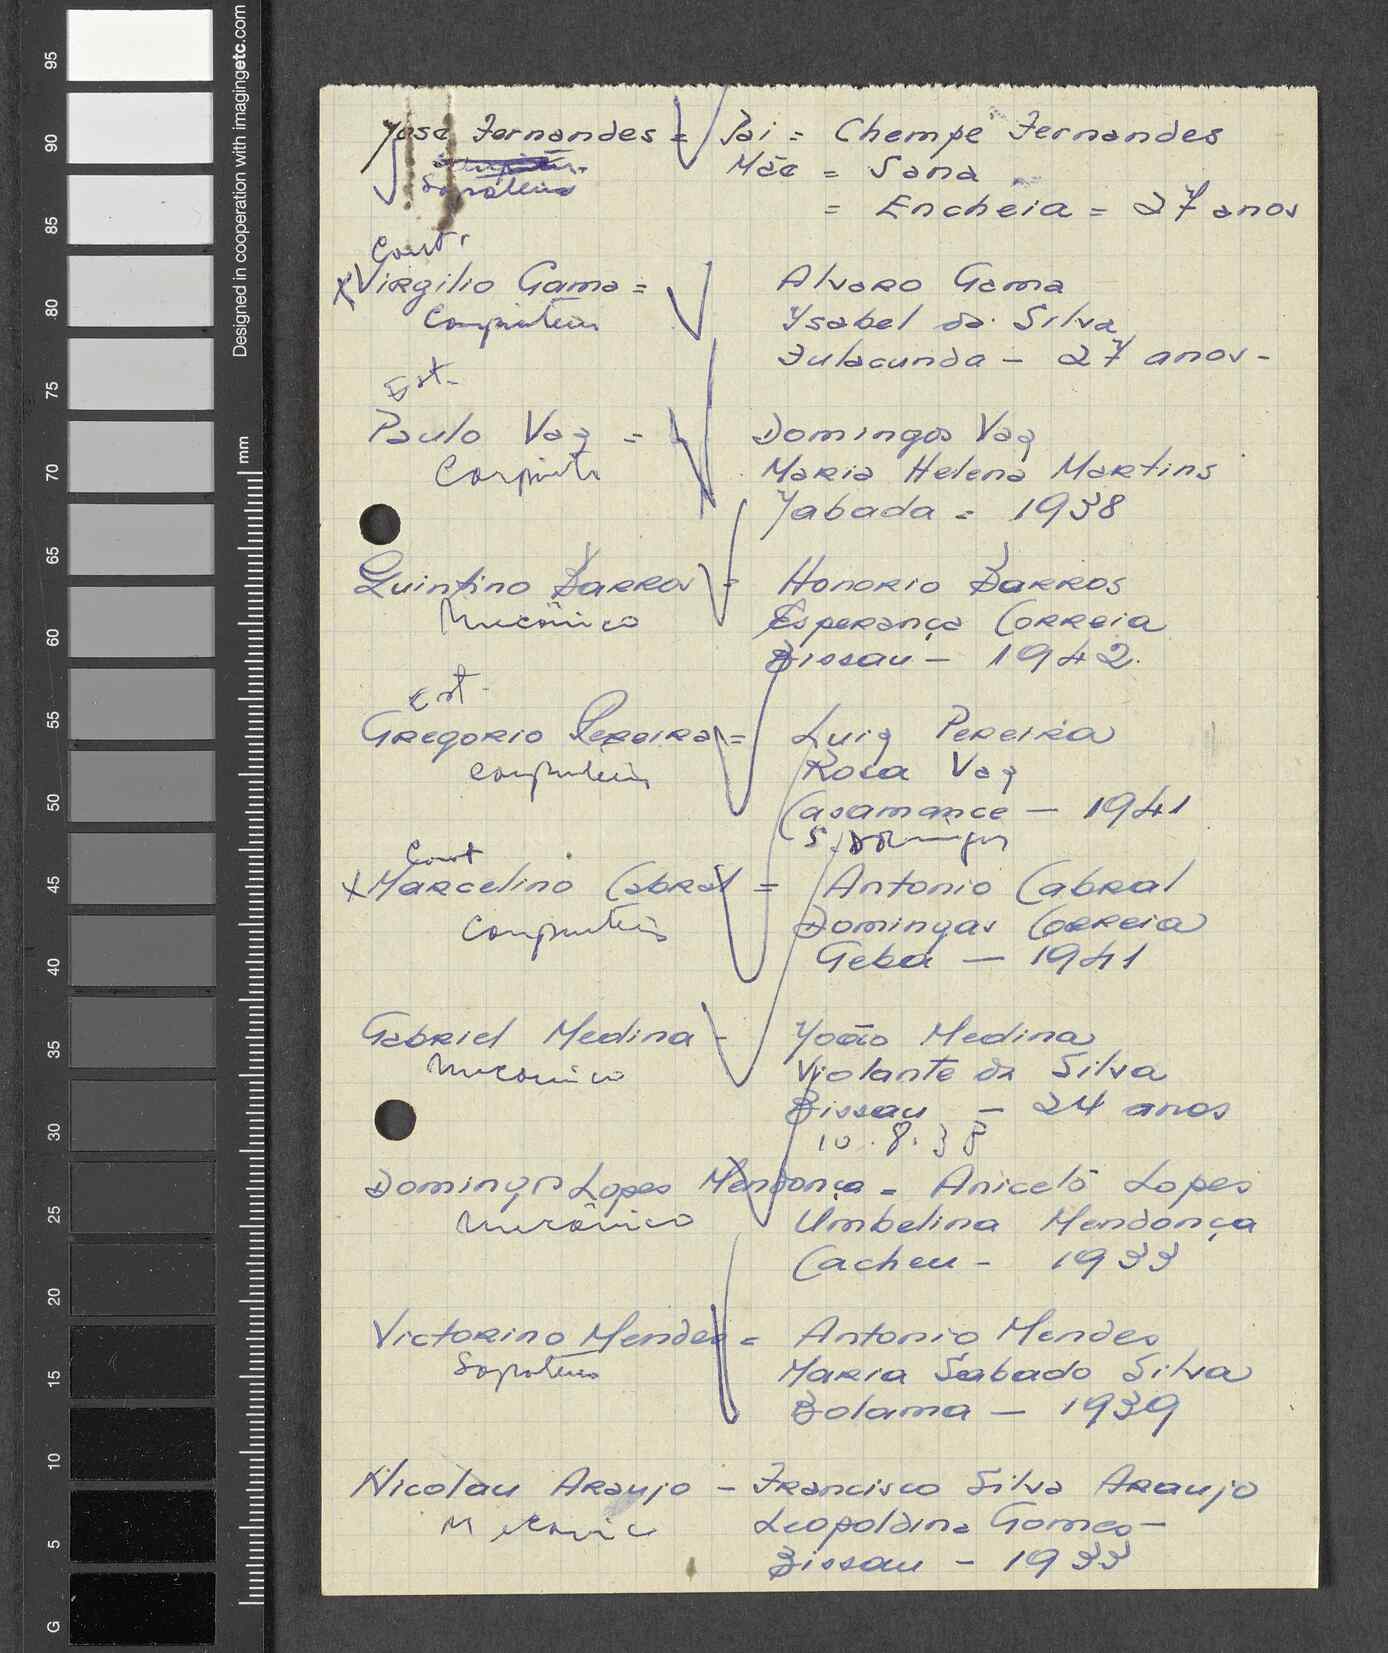 José Fernandes = Pai = Chempe Fernandes
Sapateiro Mãe = Sana
= Encheia = 27 anos
Const.
x Virgilio Gama = Alvaro Gama
Carpinteiro Ysabel da Silva
Fulacunda - 27 anos -
Est.
Paulo Vaz = Domingos Vaz
Carpinte Maria Helena Martins
Jabada = 1938
Quintino Barros = Honorio Barros
Mecânico Esperança Correia
Bissau - 1942.
Est.
Gregorio Pereira = Luiz Pereira
Carpinteiro Rosa Vaz
Casamance - 1941
S. Domingos
Const
x Marcelino Cabral = Antonio Cabral
Carpinteiro Domingas Correia
Geba - 1941
Gabriel Medina - Yoão Medina
Mecanico Violante da Silva
Bissau - 24 anos
10.8.38
Domingos Lopes Mendonça = Aniceto Lopes
Mecânico Umbelina Mendonça
Cacheu - 1933
Victorino Mendes = Antonio Mendes
Sapateiro Maria Sabado Silva
Bolama - 1939
Nicolau Araujo - Francisco Silva Araujo
Mecanic Leopoldina Gomes -
Bissau - 1933
Designed in cooperation with imagingetc.com
mm
95
90
85
80
75
70
65
60
55
50
45
40
35
30
25
20
15
10
5
G